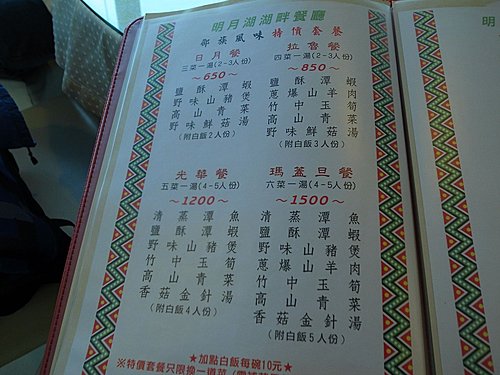 明月湖湖畔餐廳
鄒族風味特價套餐
日月餐
三菜一湯(2-3人份)
～650～
鹽酥潭蝦
野味山豬煲
高山青菜
野味鮮菇湯
(附白飯2人份)
拉魯餐
四菜一湯(2-3人份)
～850～
鹽酥潭蝦
蔥爆山羊肉
竹中玉筍
高山青菜
野味鮮菇湯
(附白飯3人份)
光華餐
五菜一湯(4-5人份)
～1200～
清蒸潭魚
鹽酥潭蝦
野味山豬煲
竹中玉筍
高山青菜
香菇金針湯
(附白飯4人份)
瑪蓋旦餐
六菜一湯(4-5人份)
～1500～
清蒸潭魚
鹽酥潭蝦
野味山豬煲
蔥爆山羊肉
竹中玉筍
高山青菜
香菇金針湯
(附白飯5人份)
★加點白飯每碗10元★
※特價套餐只限換一道菜
明